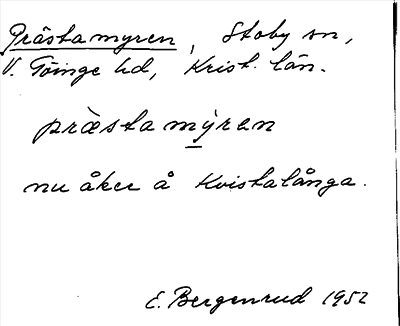 Prästamyren, Stoby sn,
V. Göinge hd, Krist. län.
prästa mýren
nu åker å Kvistalånga.
E. Bergenrud 1952